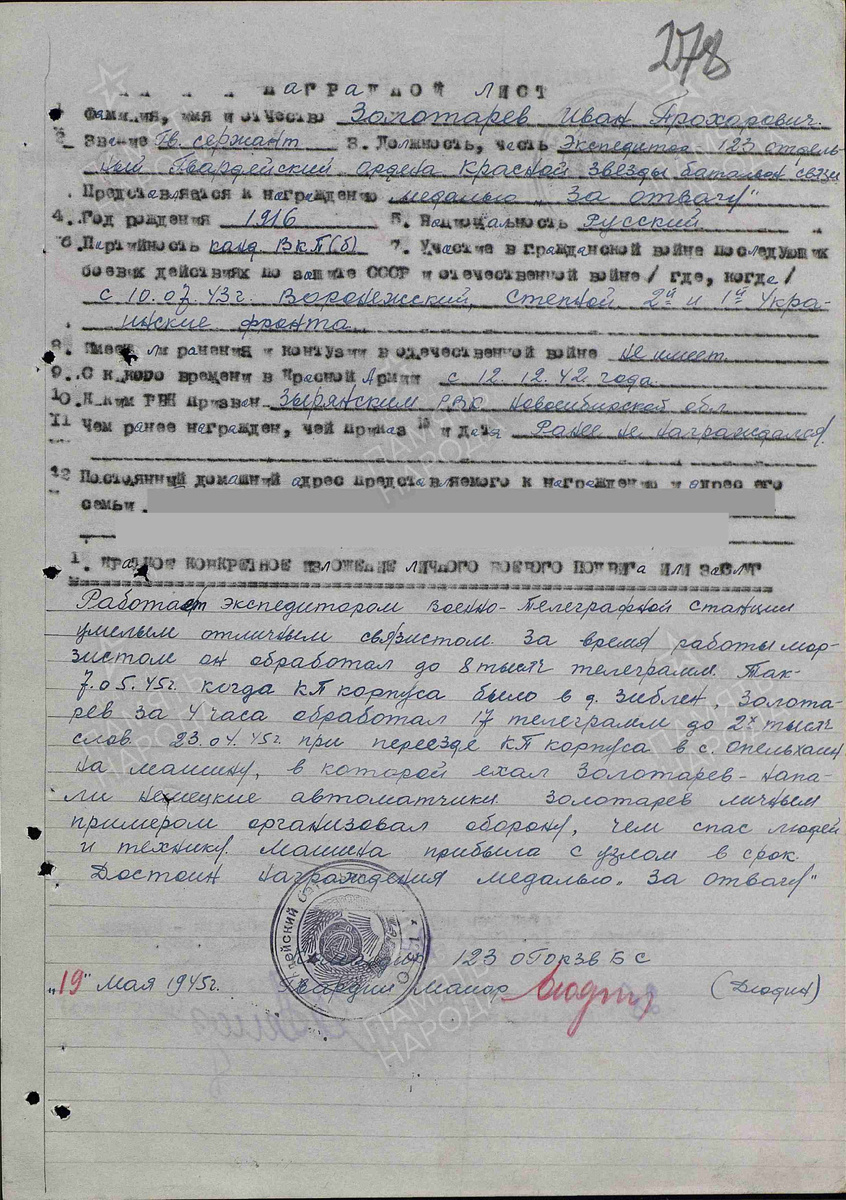 278
НАГРАДНОЙ ЛИСТ
1. Фамилия, имя и отчество Золотарев Иван Прохорович.
2. Звание Гв. сержант 3. Должность, часть Экспедитор 123 отдель-
ный Гвардейский ордена Красной Звезды батальон связи
Представляется к награждению медалью „За отвагу"
4. Год рождения 1916 5. Национальность Русский
6. Партийность канд ВКП(б) 7. Участие в гражданской войне последующих
боевых действиях по защите СССР и отечественной войне /где, когда/
с 10.07.43г. Воронежский, Степной 2й и 1й Укра-
инские фронта
8. Имеет ли ранения и контузии в отечественной войне не имеет.
9. С какого времени в Красной Армии с 12.12.42 года.
10. Каким РВК призван Зырянским РВК Новосибирской обл
11 Чем ранее награжден, чей приказ № и дата Ранее не награждался.
12 Постоянный домашний адрес представляемого к награждению и адрес его
семьи.
1. КРАТКОЕ КОНКРЕТНОЕ ИЗЛОЖЕНИЕ ЛИЧНОГО БОЕВОГО ПОДВИГА ИЛИ ЗАСЛУГ
Работает экспедитором военно-телеграфной станции
умелым отличным связистом. За время работы мор-
зистом он обработал до 8 тысяч телеграмм. Так-
7.05.45г. когда КП корпуса было в д. Зиблен, Золота-
рев за 4 часа обработал 17 телеграмм до 2х тысяч
слов. 23.04.45г. при переезде КП корпуса в с. Опельхаин
на машину, в которой ехал Золотарев - напа-
ли немецкие автоматчики. Золотарев личным
примером организовал оборону, чем спас людей
и технику. Машина прибыла с узлом в срок.
Достоин награждения медалью „За отвагу"
123 ОГОРЗВ БС
„19" мая 1945г. Гвардии майор (Дюдин)
ПАМЯТЬ НАРОДА